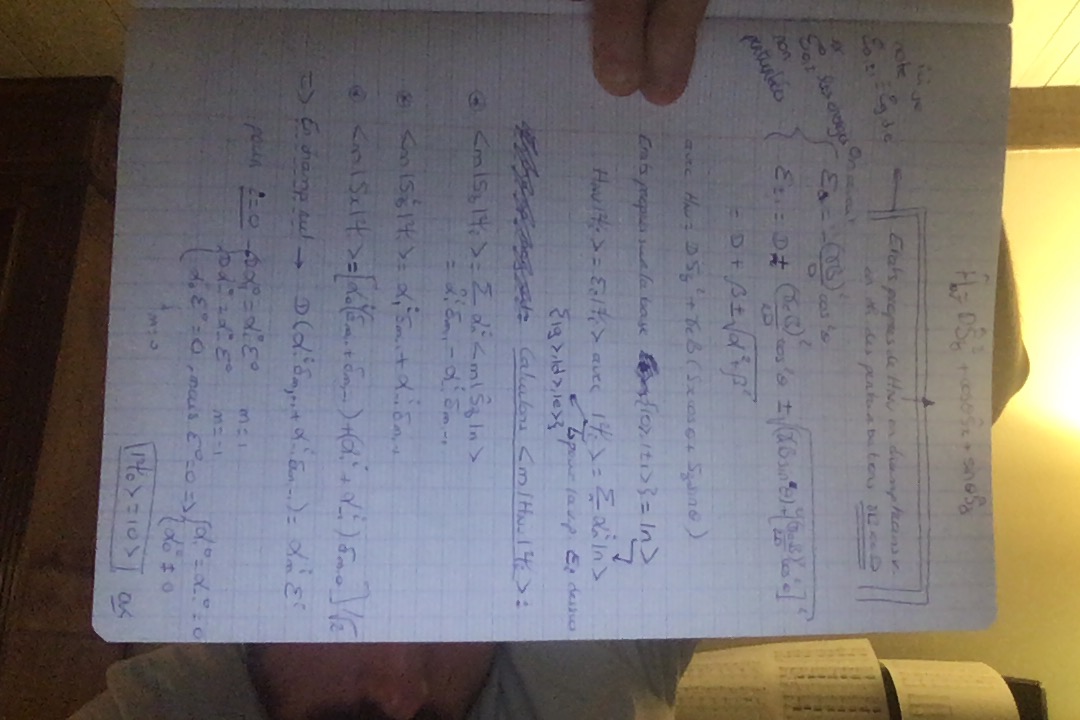 Ĥ = DŜz² + cosθŜx + sinθŜz
ici je
note
Etats propres de HNV en champ transv.
en th. des perturbations
or
les énergies
non
perturbées
On avait
ε0 = -(γB)²/D cos²θ
ε±1 = D + (γeB)²/2D cos²θ ± √((γBsinθ)²+[(γeB)²/2D cos²θ]²)
= D + β ± √α²+β²
avec HNV = DSz² + γeB(Sx cosθ + Sz sinθ)
Etats propres sur la base {|0>,|±1>} = |n>
HNV|Ψi> = εi|Ψi> avec |Ψi> = Σn αn^i |n>
{|g>,|d>,|e>}
Calculons <m|HNV|Ψi> :
<m|Sz|Ψi> = Σ αn^i <m|Ŝz|n>
= α1^i δm,1 - α-1^i δm,-1
<m|Sz²|Ψi> = α1^i δm,1 + α-1^i δm,-1
<m|Sx|Ψi> = [α0^i(δm,1 + δm,-1) + (α1^i + α-1^i) δm,0] 1/√2
=> En champ nul → D(α1^i δm,+1 + α-1^i δm,-1) = αm^i ε^i
pour i=0 Dα1^0 = α1^0 ε^0 m=1
Dα-1^0 = α-1^0 ε^0 m=-1
α0^0 ε^0 = 0, mais ε^0=0 => {α1^0 = α-1^0 = 0
α0^0 ≠ 0
m=0
|Ψ0> = |0> ok